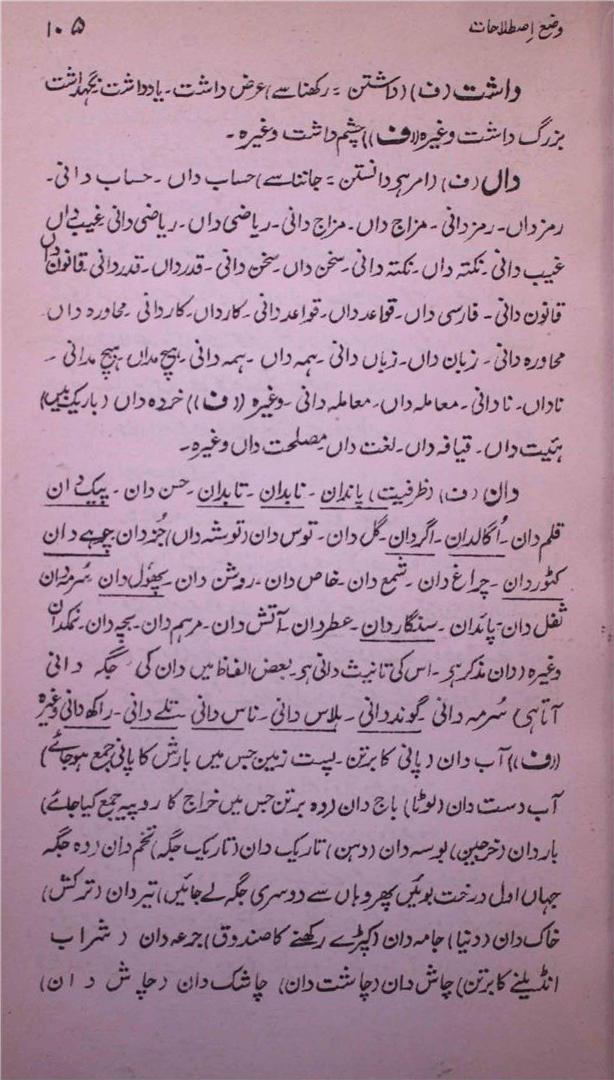 وضع اصطلاحات ۱۰۵
داشت (ف) (داشتن = رکھنا سے) عرض داشت۔ یادداشت۔ نگہداشت
بزرگ داشت وغیرہ ((ف)) چشم داشت وغیرہ۔
داں (ف) (امر ہی دانستن = جاننا سے) حساب داں۔ حساب دانی۔
رمز داں۔ رمز دانی۔ مزاج داں۔ مزاج دانی۔ ریاضی داں۔ ریاضی دانی غیب داں
غیب دانی۔ نکتہ داں۔ نکتہ دانی۔ سخن داں۔ سخن دانی۔ قدرداں۔ قدردانی۔ قانون داں
قانون دانی۔ فارسی داں۔ قواعد داں۔ قواعد دانی۔ کارداں۔ کاردانی۔ محاورہ داں۔
محاورہ دانی۔ زبان داں۔ زباں دانی۔ ہمہ داں۔ ہمہ دانی۔ ہیچ مداں ہیچ مدانی۔
ناداں۔ نادانی۔ معاملہ داں۔ معاملہ دانی۔ وغیرہ ((ف)) خردہ داں (باریک بیں)
ہئیت داں۔ قیافہ داں۔ لغت داں۔ مصلحت داں وغیرہ۔
دان (ف) (ظرفیت) پاندان۔ نابدان۔ تابدان۔ حسن دان۔ پیک دان
قلم دان۔ اُگالدان۔ اگردان۔ گل دان۔ توس دان (توشہ داں) جُزدان چوہے دان
کٹوردان۔ چراغ دان۔ شمع دان۔ خاص دان۔ روشن دان۔ پھول دان سُرمہ دان
ثفل دان۔ پائدان۔ سنگاردان۔ عطردان۔ آتش دان۔ مرہم دان۔ بچہ دان۔ نمکدان
وغیرہ (دان مذکر ہی۔ اس کی تانیث دانی ہی۔ بعض الفاظ میں دان کی جگہ دانی
آتا ہی) سُرمہ دانی۔ گوند دانی۔ ہلاس دانی۔ ناس دانی۔ تلے دانی۔ راکھ دانی وغیرہ
((ف)) آب دان (پانی کا برتن۔ پست زمین جس میں بارش کا پانی جمع ہوجائے)
آب دست دان (لوٹا) باج دان (وہ برتن جس میں خراج کا روپیہ جمع کیا جائے)
باردان (خرجین) بوسہ دان (دہن) تاریک دان (تاریک جگہ) تخم دان (وہ جگہ
جہاں اول درخت بوئیں پھر وہاں سے دوسری جگہ لے جائیں) تیردان (ترکش)
خاک دان (دنیا) جامہ دان (کپڑے رکھنے کا صندوق) جرعہ دان (شراب
انڈیلنے کا برتن) چاش دان (چاشت دان) چاشک دان (چاش دان)